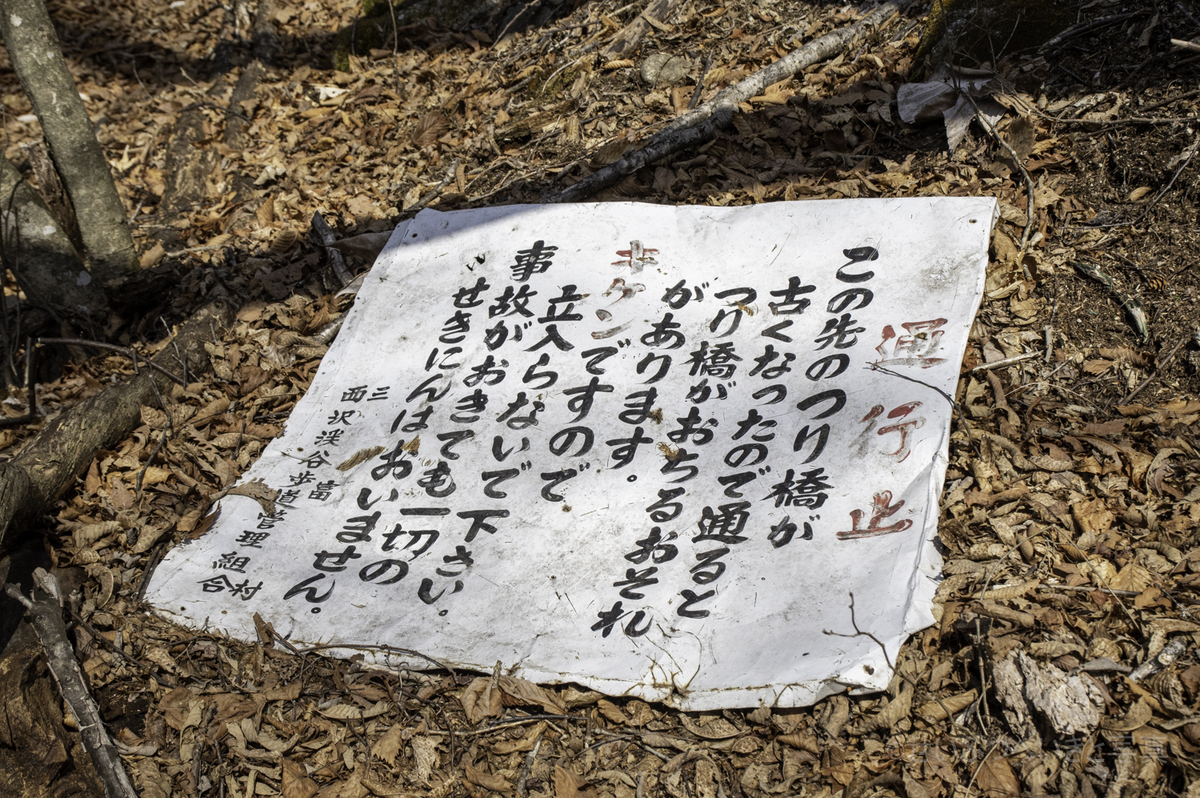 通行止
この先のつり橋が
古くなったので通ると
つり橋がおちるおそれ
があります。
キケンですので
立入らないで下さい。
事故がおきても一切の
せきにんはおいません。
三富村
西沢渓谷歩道管理組合